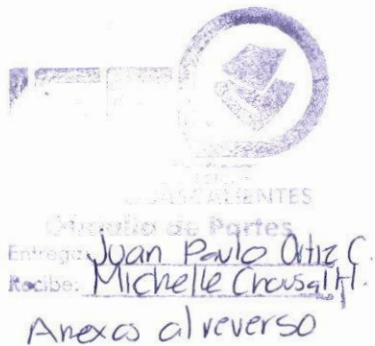 AGUASCALIENTES
Oficialía de Partes
Entrega: Juan Paulo Ortiz C.
Recibe: Michelle H.
Anexos al reverso